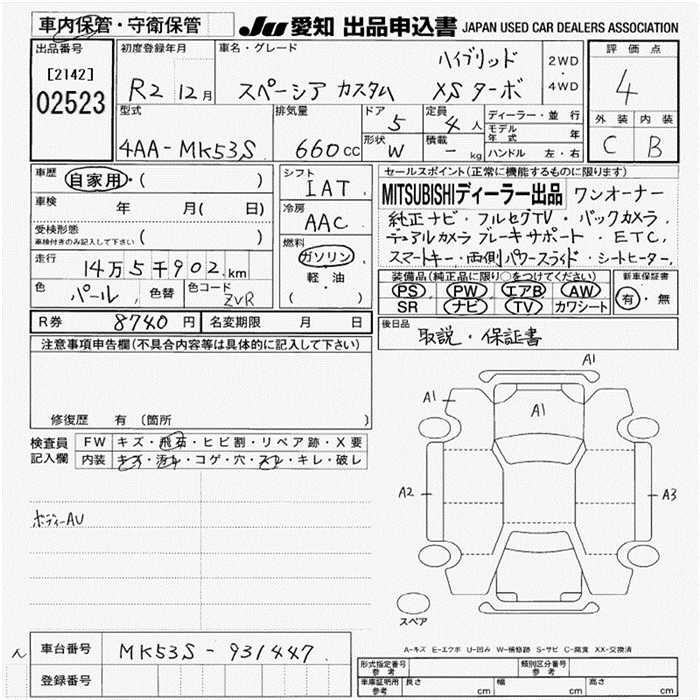 車内保管・守衛保管
JU 愛知 出品申込書 JAPAN USED CAR DEALERS ASSOCIATION
出品番号 [2142] 02523
初度登録年月 R2 12月
車名・グレード ハイブリッド
スペーシア カスタム XSターボ
2WD・4WD
評価点 4
外装 C 内装 B
型式 4AA-MK53S
排気量 660cc
ドア 5
形状 W
定員 4人
積載 - kg
ディーラー・並行
モデル年式 年
ハンドル 左・右
車歴 自家用・( )
車検 年 月( 日)
受検形態 車検付きのみ記入して下さい ( )
走行 14万5千902km
色 パール 色替 色コード ZVR
シフト IAT
冷房 AAC
燃料 ガソリン
軽・油
( )
セールスポイント(正常に機能するものに限ります)
MITSUBISHIディーラー出品 ワンオーナー
純正ナビ・フルセグTV・バックカメラ.
デュアルカメラブレーキサポート・ETC.
スマートキー・両側パワースライド・シートヒーター.
装備品(純正品に限り○をつけてください)
PS PW エアB AW
SR ナビ TV カワシート
新車保証書
有・無
R券 8740円 名変期限 月 日
後日品 取説・保証書
注意事項申告欄(不具合内容等は具体的に記入して下さい)
修復歴 有 〔箇所 〕
検査員記入欄
FW キズ・飛石・ヒビ割・リペア跡・X要
内装 キズ・汚れ・コゲ・穴・スレ・キレ・破レ
ボディーAU
A1
A1
A1
A2
A3
スペア
A-キズ E-エクボ U-凹み W-補修跡 S-サビ C-腐食 XX-交換済
車台番号 MK53S-931447
登録番号
型式指定番号 参考
類別区分番号 参考
車庫証明用 参考 長さ cm 幅 cm 高さ cm